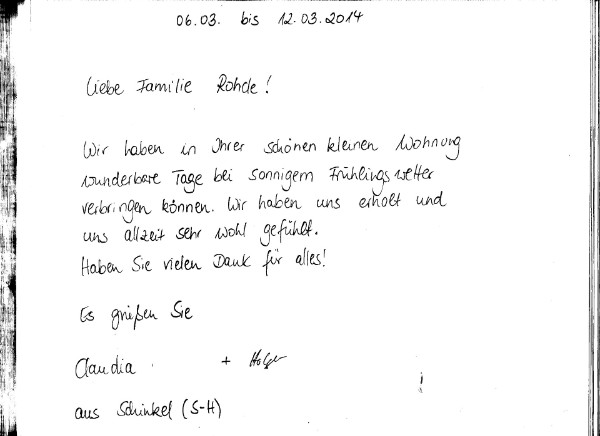 06.03. bis 12.03.2014
Liebe Familie Rohde!
Wir haben in Ihrer schönen kleinen Wohnung
wunderbare Tage bei sonnigem Frühlingswetter
verbringen können. Wir haben uns erholt und
uns allzeit sehr wohl gefühlt.
Haben Sie vielen Dank für alles!
Es grüßen Sie
Claudia + Holger
aus Schinkel (S-H)